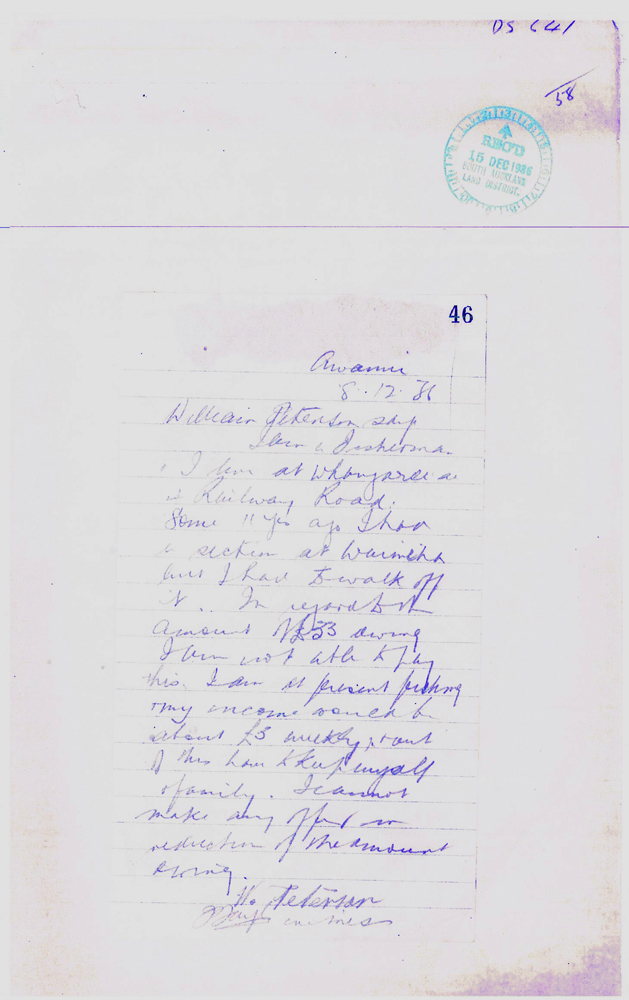 DS 641
58
REC'D
15 DEC 1936
SOUTH AUCKLAND
LAND DISTRICT.
46
Awanui
8.12.36
William Peterson says
I am a Fisherman
I live at Whangarei
Railway Road.
Some 11 yrs ago I had
a section at Waimiha
but I had to walk off
it. In regard to the
amount of £33 owing
I am not able to pay
this. I am at present fishing
my income would be
about £3 weekly, & out
of this have to keep myself
& family. I cannot
make any offer in
reduction of the amount
owing.
W. Peterson
witness